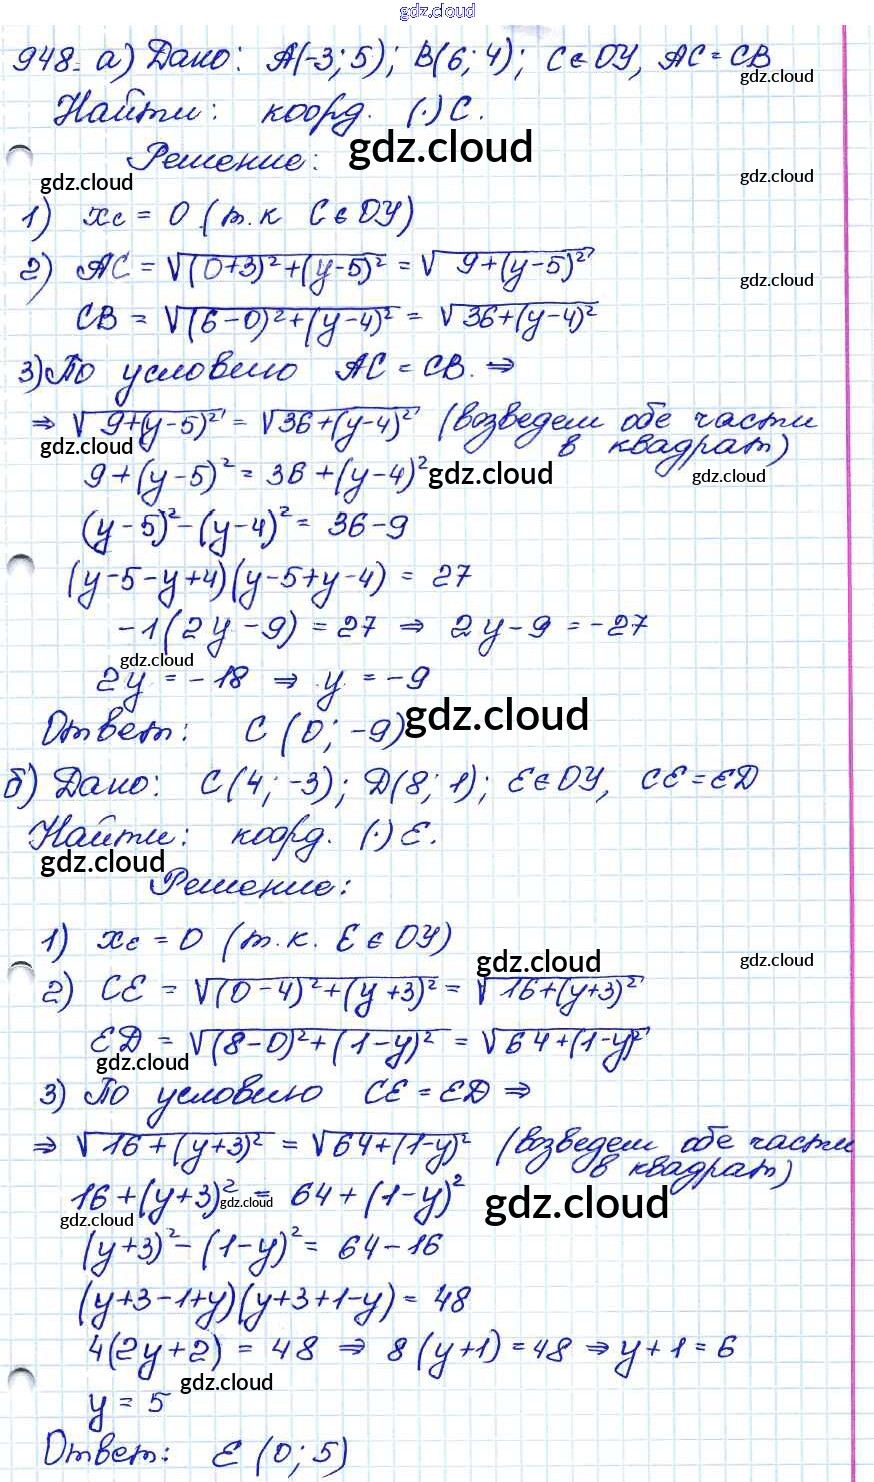 gdz.cloud
948. а) Дано: A(-3; 5); B(6; 4); C∈OУ, AC = CB
gdz.cloud
Найти: коорд. (·) C.
gdz.cloud
Решение:
gdz.cloud
gdz.cloud
1) xc = 0 (т.к C∈OУ)
2) AC = √(0+3)²+(y-5)² = √9+(y-5)²
gdz.cloud
CB = √(6-0)²+(y-4)² = √36+(y-4)²
3) По условию AC = CB. ⇒
⇒ √9+(y-5)² = √36+(y-4)² (возведем обе части
в квадрат)
gdz.cloud
9+(y-5)² = 36+(y-4)²
gdz.cloud
gdz.cloud
(y-5)²-(y-4)² = 36-9
(y-5-y+4)(y-5+y-4) = 27
-1(2y-9) = 27 ⇒ 2y-9 = -27
gdz.cloud
2y = -18 ⇒ y = -9
Ответ: C (0; -9)
gdz.cloud
б) Дано: C(4; -3); D(8; 1); E∈OУ, CE = ED
Найти: коорд. (·) E.
gdz.cloud
Решение:
1) xE = 0 (т.к. E∈OУ)
gdz.cloud
gdz.cloud
2) CE = √(0-4)²+(y+3)² = √16+(y+3)²
ED = √(8-0)²+(1-y)² = √64+(1-y)²
gdz.cloud
3) По условию CE = ED ⇒
⇒ √16+(y+3)² = √64+(1-y)² (возведем обе части
в квадрат)
16+(y+3)² = 64+(1-y)²
gdz.cloud
gdz.cloud
gdz.cloud
(y+3)²-(1-y)² = 64-16
(y+3-1+y)(y+3+1-y) = 48
4(2y+2) = 48 ⇒ 8(y+1) = 48 ⇒ y+1 = 6
gdz.cloud
y = 5
Ответ: E (0; 5)